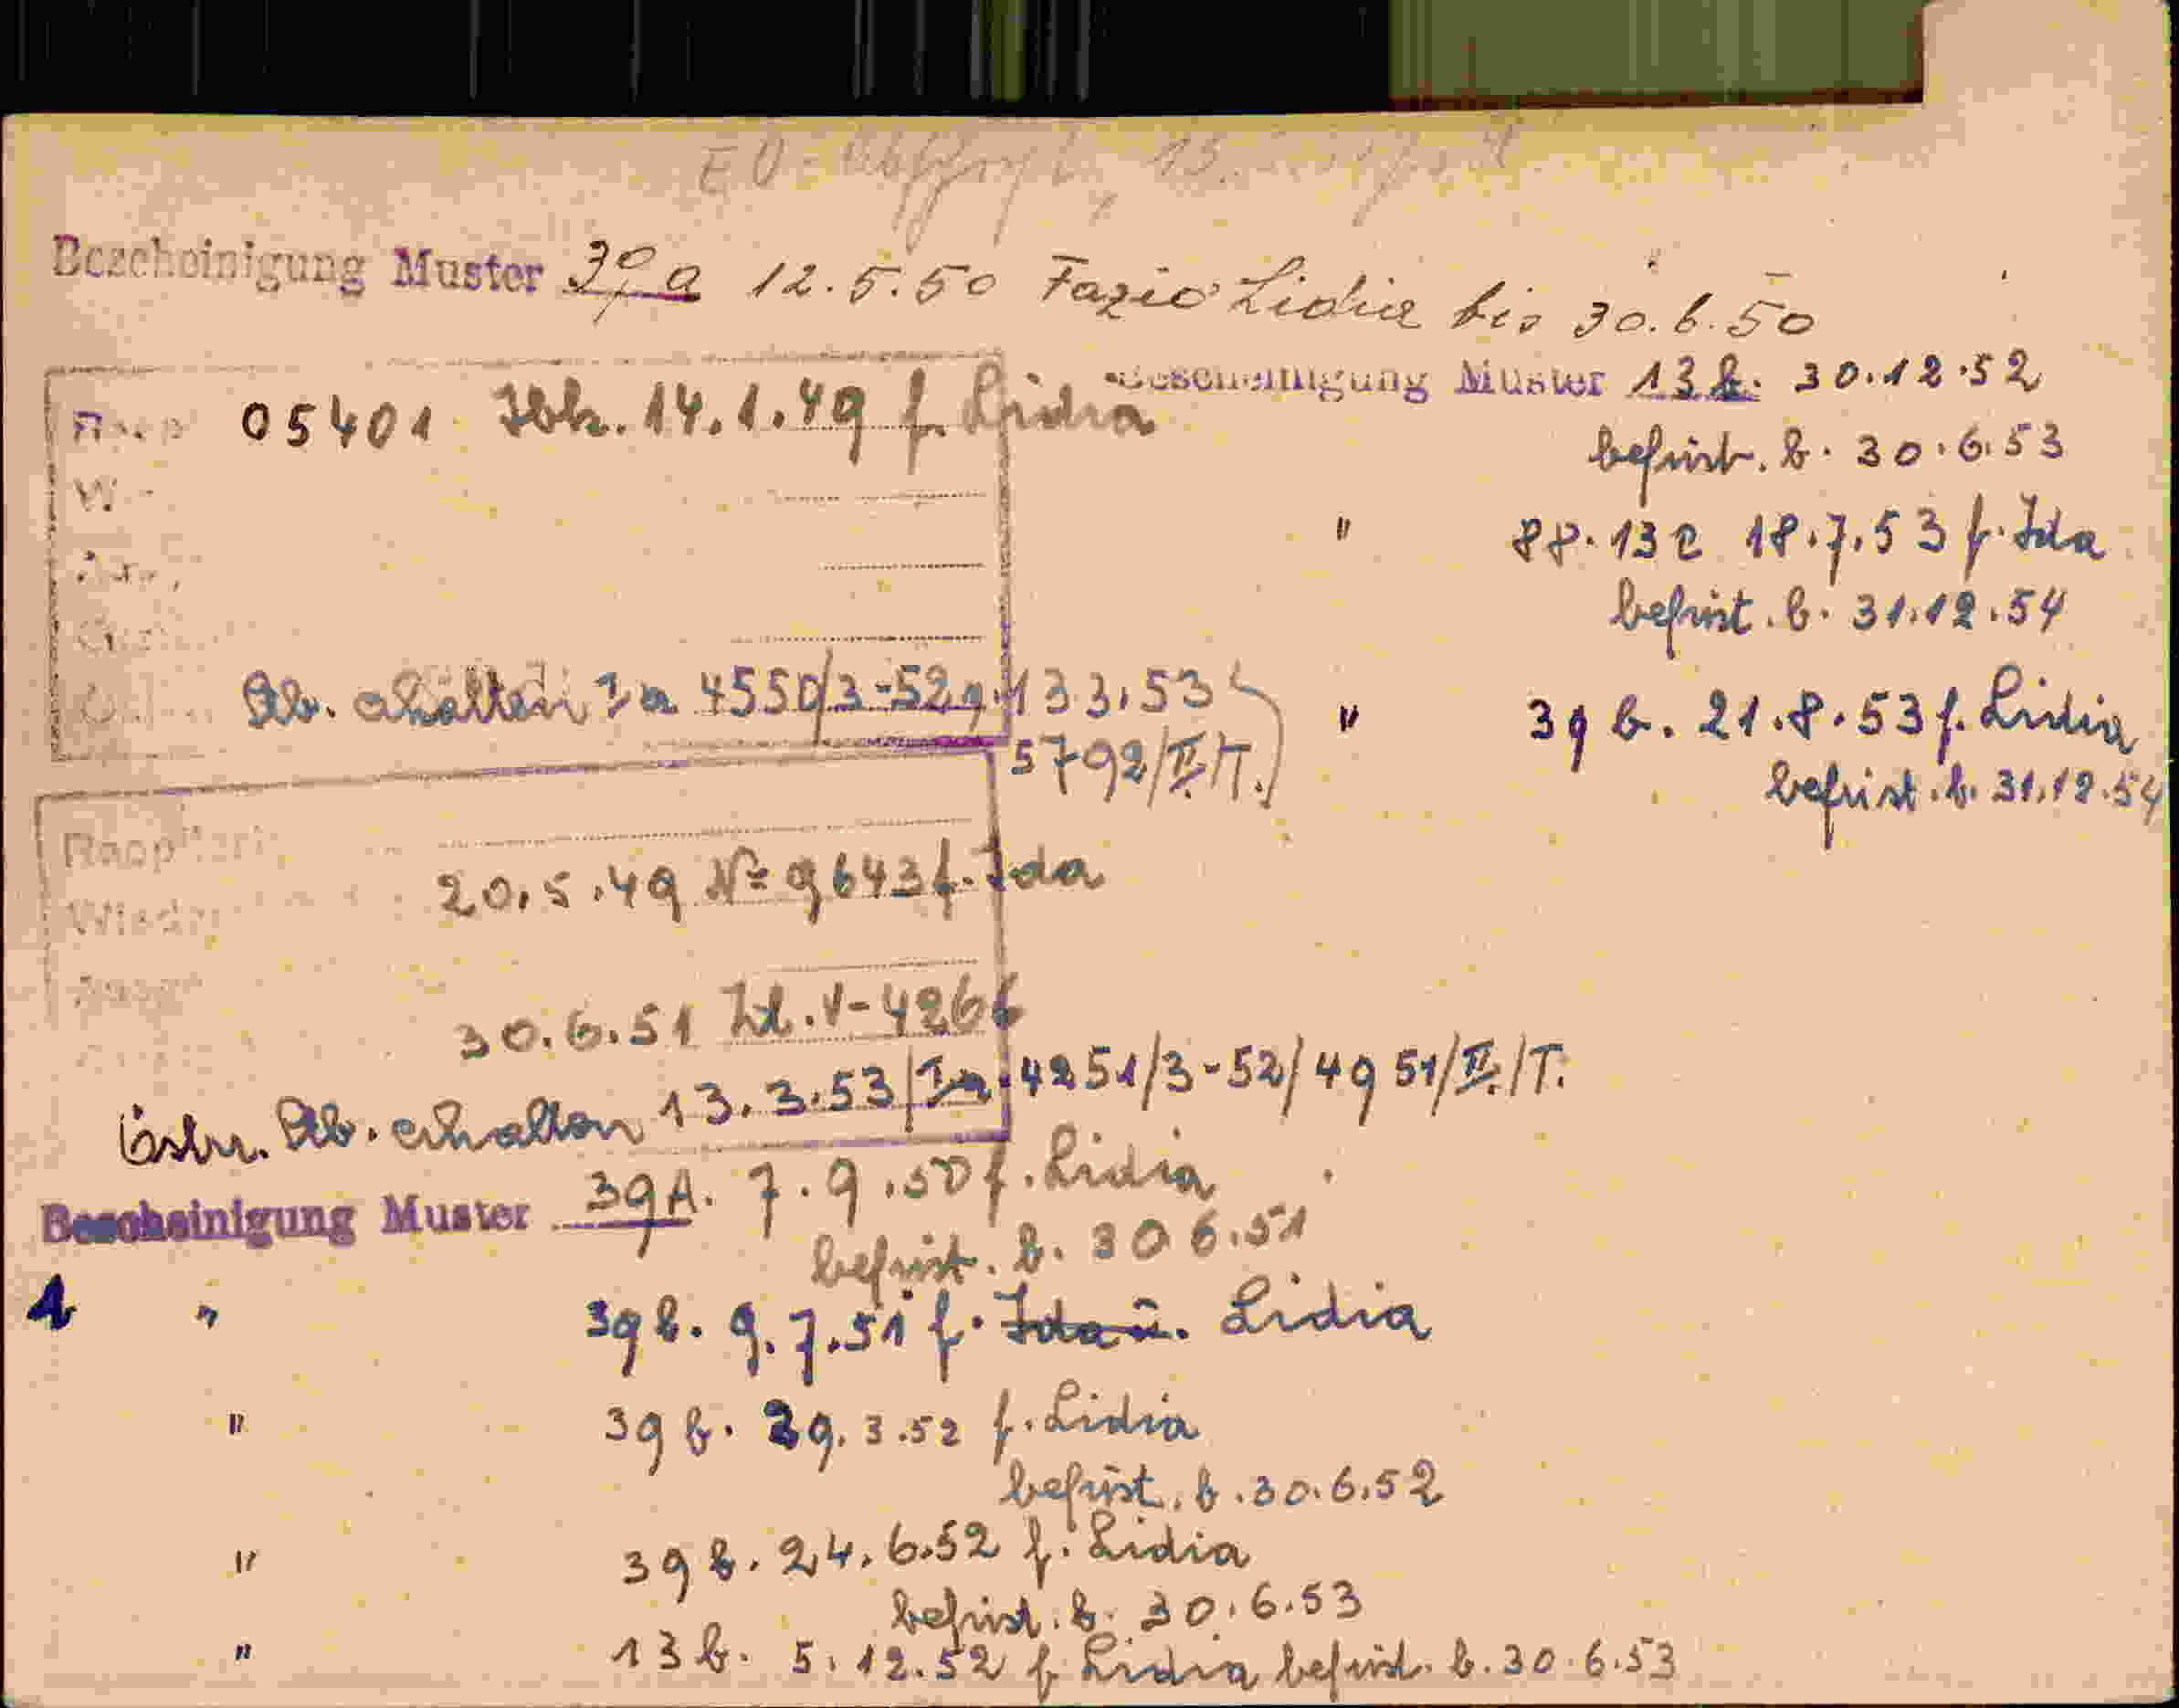 Bescheinigung Muster 39a 12.5.50 Fazio Lidia bis 30.6.50
05401 Ibk. 14.1.49 f. Lidia
Stb. erhalten Ia 4550/3-52 v. 13 3.53
5792/II/T.
20.5.49 No 9643 f. Ida
30.6.51 Zl. V-4266
Östr. Stb. erhalten 13.3.53/Ia 4251/3-52/4951/II./T.
Bescheinigung Muster 39A. 7.9.50 f. Lidia
befrist. b. 30 6.51
" 39b. 9.7.51 f. Ida u. Lidia
" 39b. 29.3.52 f. Lidia
befrist. b. 30.6.52
" 39b. 24.6.52 f. Lidia
befrist. b. 30.6.53
" 13b. 5.12.52 f Lidia befrist. b. 30.6.53
Bescheinigung Muster 13b. 30.12.52
befrist. b. 30.6.53
" 88.132 18.7.53 f. Ida
befrist. b. 31.12.54
" 39b. 21.8.53 f. Lidia
befrist. b. 31.12.54